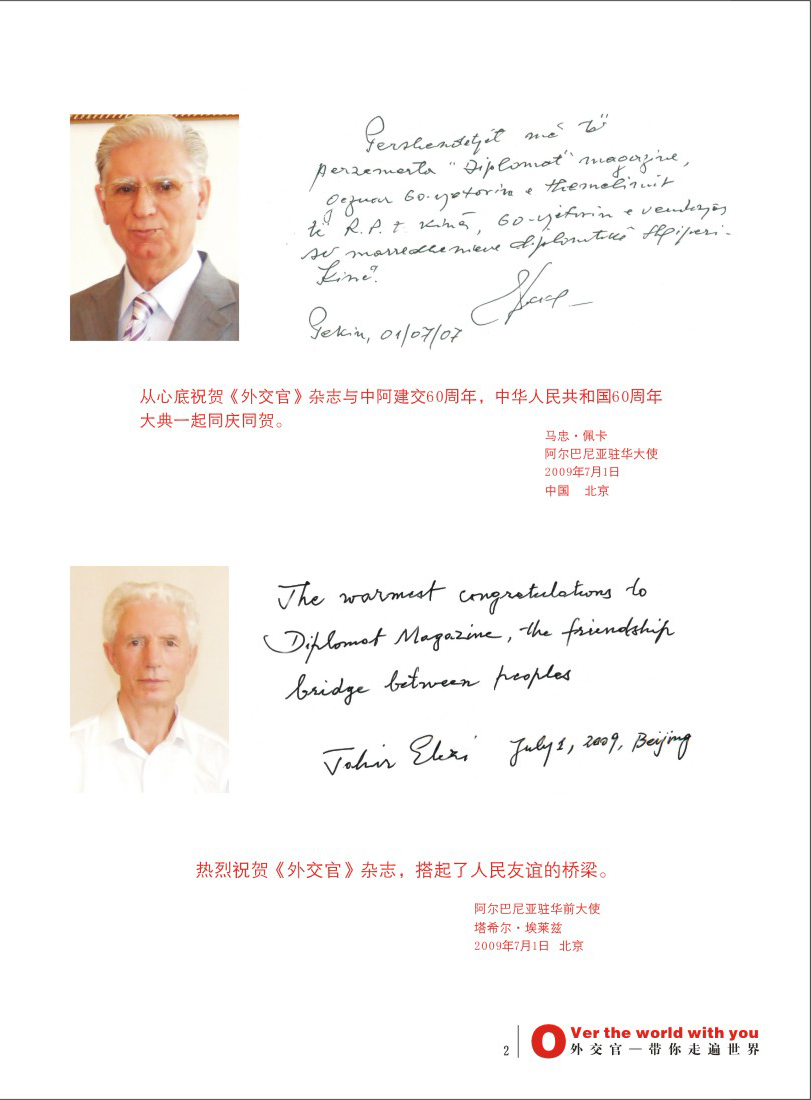 Pershendetjet më të
përzemërta "Diplomat" magazine,
60-vjetorin e themelimit
të R.P. të Kinës, 60-vjetorin e vendosjes
së marredhenieve diplomatike Shqiperi-
Kinë.
Pekin, 01/07/07
从心底祝贺《外交官》杂志与中阿建交60周年，中华人民共和国60周年
大典一起同庆同贺。
马忠·佩卡
阿尔巴尼亚驻华大使
2009年7月1日
中国 北京
The warmest congratulations to
Diplomat Magazine, the friendship
bridge between peoples
Tahir Elezi July 1, 2009, Beijing
热烈祝贺《外交官》杂志，搭起了人民友谊的桥梁。
阿尔巴尼亚驻华前大使
塔希尔·埃莱兹
2009年7月1日 北京
2
OVer the world with you
外交官—带你走遍世界